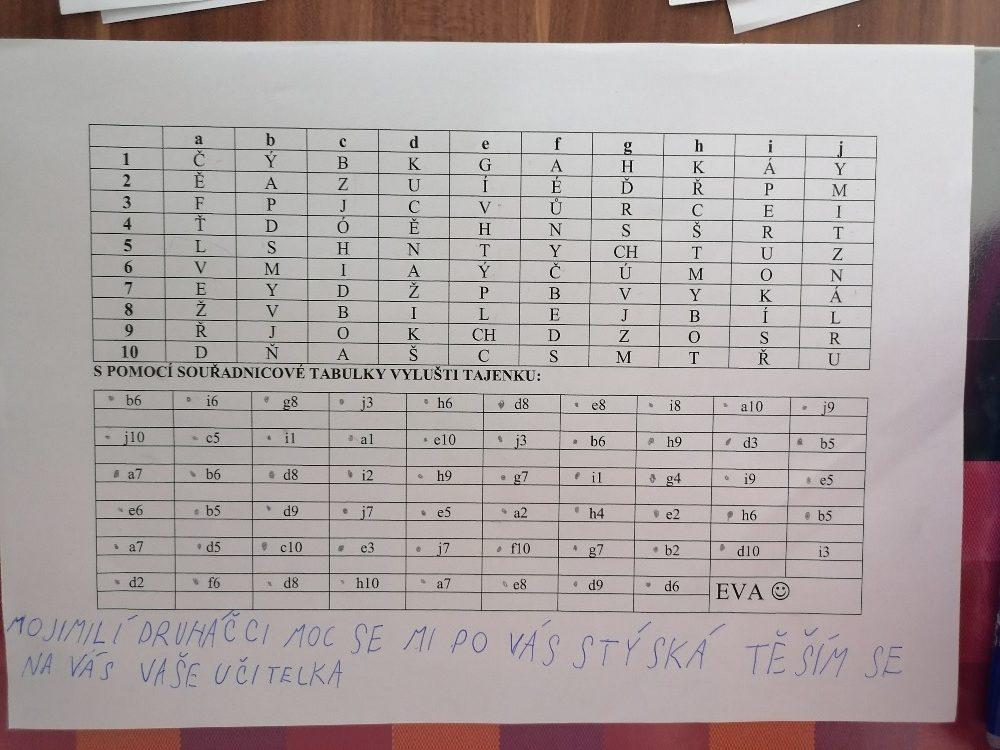 a b c d e f g h i j
1 Č Ý B K G A H K Á Y
2 Ě A Z U Í É Ď Ř P M
3 F P J C V Ů R C E I
4 Ť D Ó Ě H N S Š R T
5 L S H N T Y CH T U Z
6 V M I A Ý Č Ú M O N
7 E Y D Ž P B V Y K Á
8 Ž V B I L E J B Í L
9 Ř J O K CH D Z O S R
10 D Ň A Š C S M T Ř U
S POMOCÍ SOUŘADNICOVÉ TABULKY VYLUŠTI TAJENKU:
b6 i6 g8 j3 h6 d8 e8 i8 a10 j9
j10 c5 i1 a1 e10 j3 b6 h9 d3 b5
a7 b6 d8 i2 h9 g7 i1 g4 i9 e5
e6 b5 d9 j7 e5 a2 h4 e2 h6 b5
a7 d5 c10 e3 j7 f10 g7 b2 d10 i3
d2 f6 d8 h10 a7 e8 d9 d6 EVA ☺
MOJIMILÍ DRUHÁČCI MOC SE MI PO VÁS STÝSKÁ TĚŠÍM SE
NA VÁS VAŠE UČITELKA